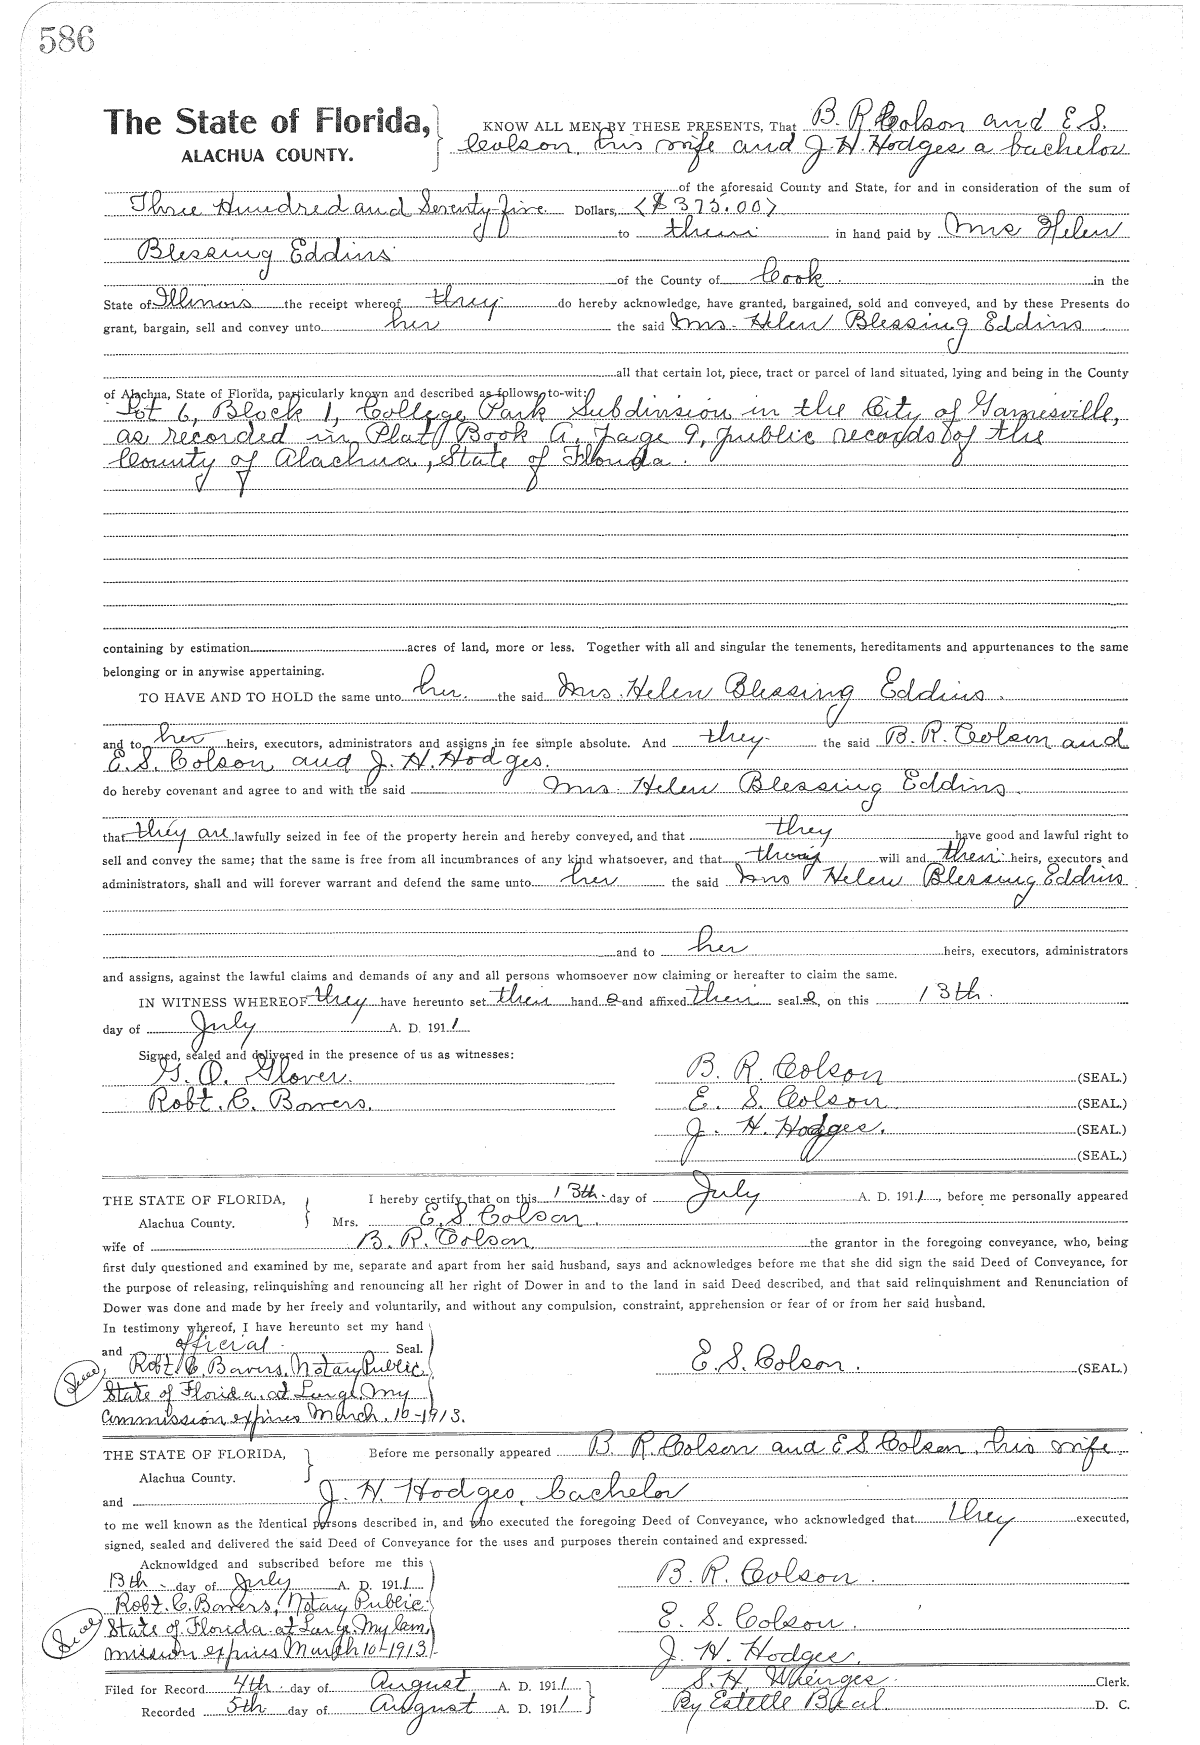 586
The State of Florida, KNOW ALL MEN BY THESE PRESENTS, That B. R. Colson and E. S.
ALACHUA COUNTY. Colson, his wife and J. H. Hodges a bachelor
of the aforesaid County and State, for and in consideration of the sum of
Three Hundred and Seventy five Dollars, ($375.00)
to them in hand paid by Mrs Helen
Blessing Eddins
of the County of Cook in the
State of Illinois the receipt whereof they do hereby acknowledge, have granted, bargained, sold and conveyed, and by these Presents do
grant, bargain, sell and convey unto her the said Mrs. Helen Blessing Eddins
all that certain lot, piece, tract or parcel of land situated, lying and being in the County
of Alachua, State of Florida, particularly known and described as follows, to-wit:
Lot 6, Block 1, College Park Subdivision in the City of Gainesville,
as recorded in Plat Book A, page 9, public records of the
County of Alachua, State of Florida.
containing by estimation acres of land, more or less. Together with all and singular the tenements, hereditaments and appurtenances to the same
belonging or in anywise appertaining.
TO HAVE AND TO HOLD the same unto her the said Mrs. Helen Blessing Eddins.
and to her heirs, executors, administrators and assigns in fee simple absolute. And they the said B. R. Colson and
E. S. Colson and J. H. Hodges.
do hereby covenant and agree to and with the said Mrs. Helen Blessing Eddins.
that they are lawfully seized in fee of the property herein and hereby conveyed, and that they have good and lawful right to
sell and convey the same; that the same is free from all incumbrances of any kind whatsoever, and that they will and their heirs, executors and
administrators, shall and will forever warrant and defend the same unto her the said Mrs Helen Blessing Eddins
and to her heirs, executors, administrators
and assigns, against the lawful claims and demands of any and all persons whomsoever now claiming or hereafter to claim the same.
IN WITNESS WHEREOF they have hereunto set their hand s and affixed their seal s, on this 13th
day of July A. D. 1911
Signed, sealed and delivered in the presence of us as witnesses:
G. O. Glover. B. R. Colson (SEAL.)
Robt. C. Bowers. E. S. Colson (SEAL.)
J. H. Hodges. (SEAL.)
(SEAL.)
THE STATE OF FLORIDA, I hereby certify that on this 13th day of July A. D. 1911, before me personally appeared
Alachua County. Mrs. E. S. Colson.
wife of B. R. Colson, the grantor in the foregoing conveyance, who, being
first duly questioned and examined by me, separate and apart from her said husband, says and acknowledges before me that she did sign the said Deed of Conveyance, for
the purpose of releasing, relinquishing and renouncing all her right of Dower in and to the land in said Deed described, and that said relinquishment and Renunciation of
Dower was done and made by her freely and voluntarily, and without any compulsion, constraint, apprehension or fear of or from her said husband.
In testimony whereof, I have hereunto set my hand
and official Seal.
Robt. C. Bowers, Notary Public E. S. Colson. (SEAL.)
Seal State of Florida. at Large. My
Commission expires March. 10-1913.
THE STATE OF FLORIDA, Before me personally appeared B. R. Colson and E S Colson, his wife
Alachua County.
and J. H. Hodges, bachelor
to me well known as the identical persons described in, and who executed the foregoing Deed of Conveyance, who acknowledged that they executed,
signed, sealed and delivered the said Deed of Conveyance for the uses and purposes therein contained and expressed.
Acknowldged and subscribed before me this
13th day of July A. D. 1911 B. R. Colson.
Robt. C. Bowers, Notary Public
Seal State of Florida at Large. My Com, E. S. Colson.
mission expires March 10-1913 J. H. Hodges.
Filed for Record 4th day of August A. D. 1911 S. H. Wienges Clerk.
Recorded 5th day of August A. D. 1911 By Estelle Beal D. C.